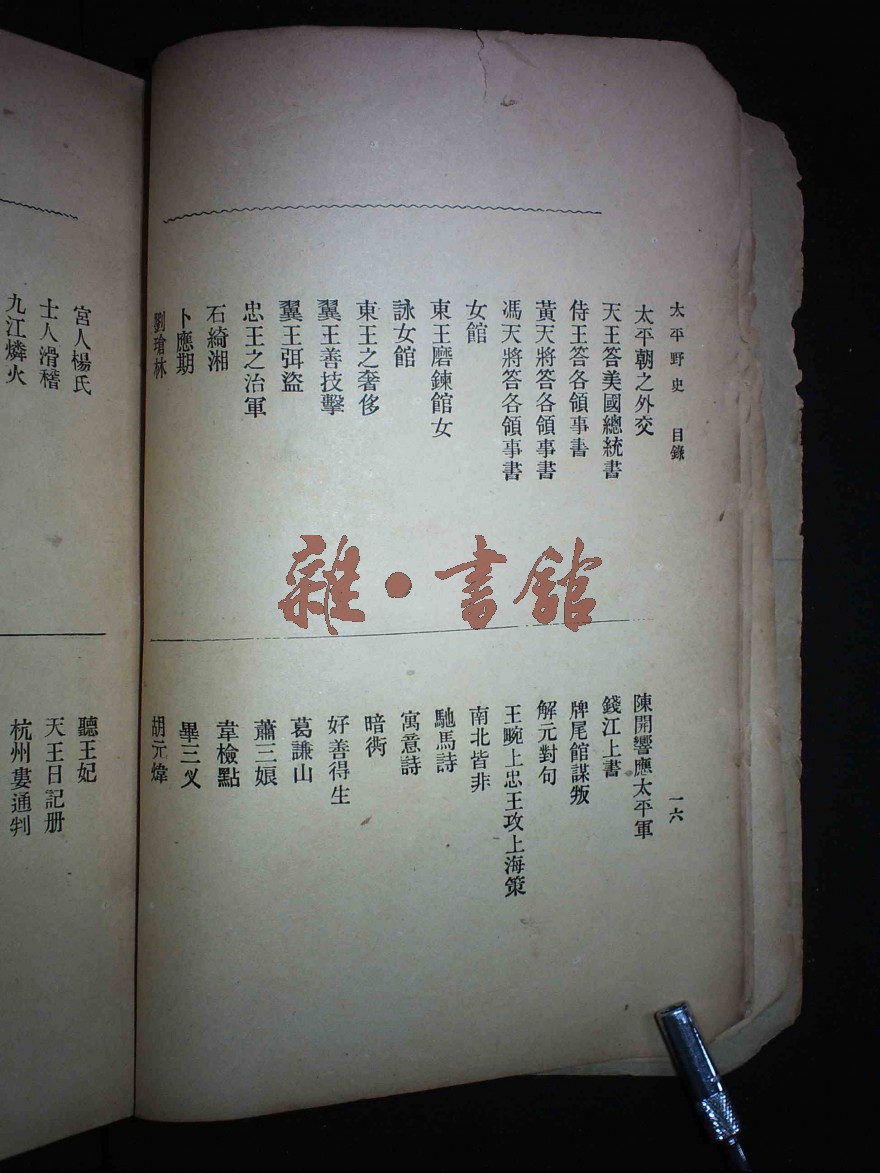 太平野史 目錄 一六
太平朝之外交
天王答美國總統書
侍王答各領事書
黃天將答各領事書
馮天將答各領事書
女館
東王磨鍊館女
詠女館
東王之奢侈
翼王善技擊
翼王弭盜
忠王之治軍
石綺湘
卜應期
劉瑲林
陳開響應太平軍
錢江上書
牌尾館謀叛
解元對句
王畹上忠王攻上海策
南北皆非
馳馬詩
寓意詩
暗衖
好善得生
葛謙山
蕭三娘
韋檢點
畢三叉
胡元煒
宮人楊氏
士人滑稽
九江燐火
聽王妃
天王日記册
杭州婁通判
雜·書館